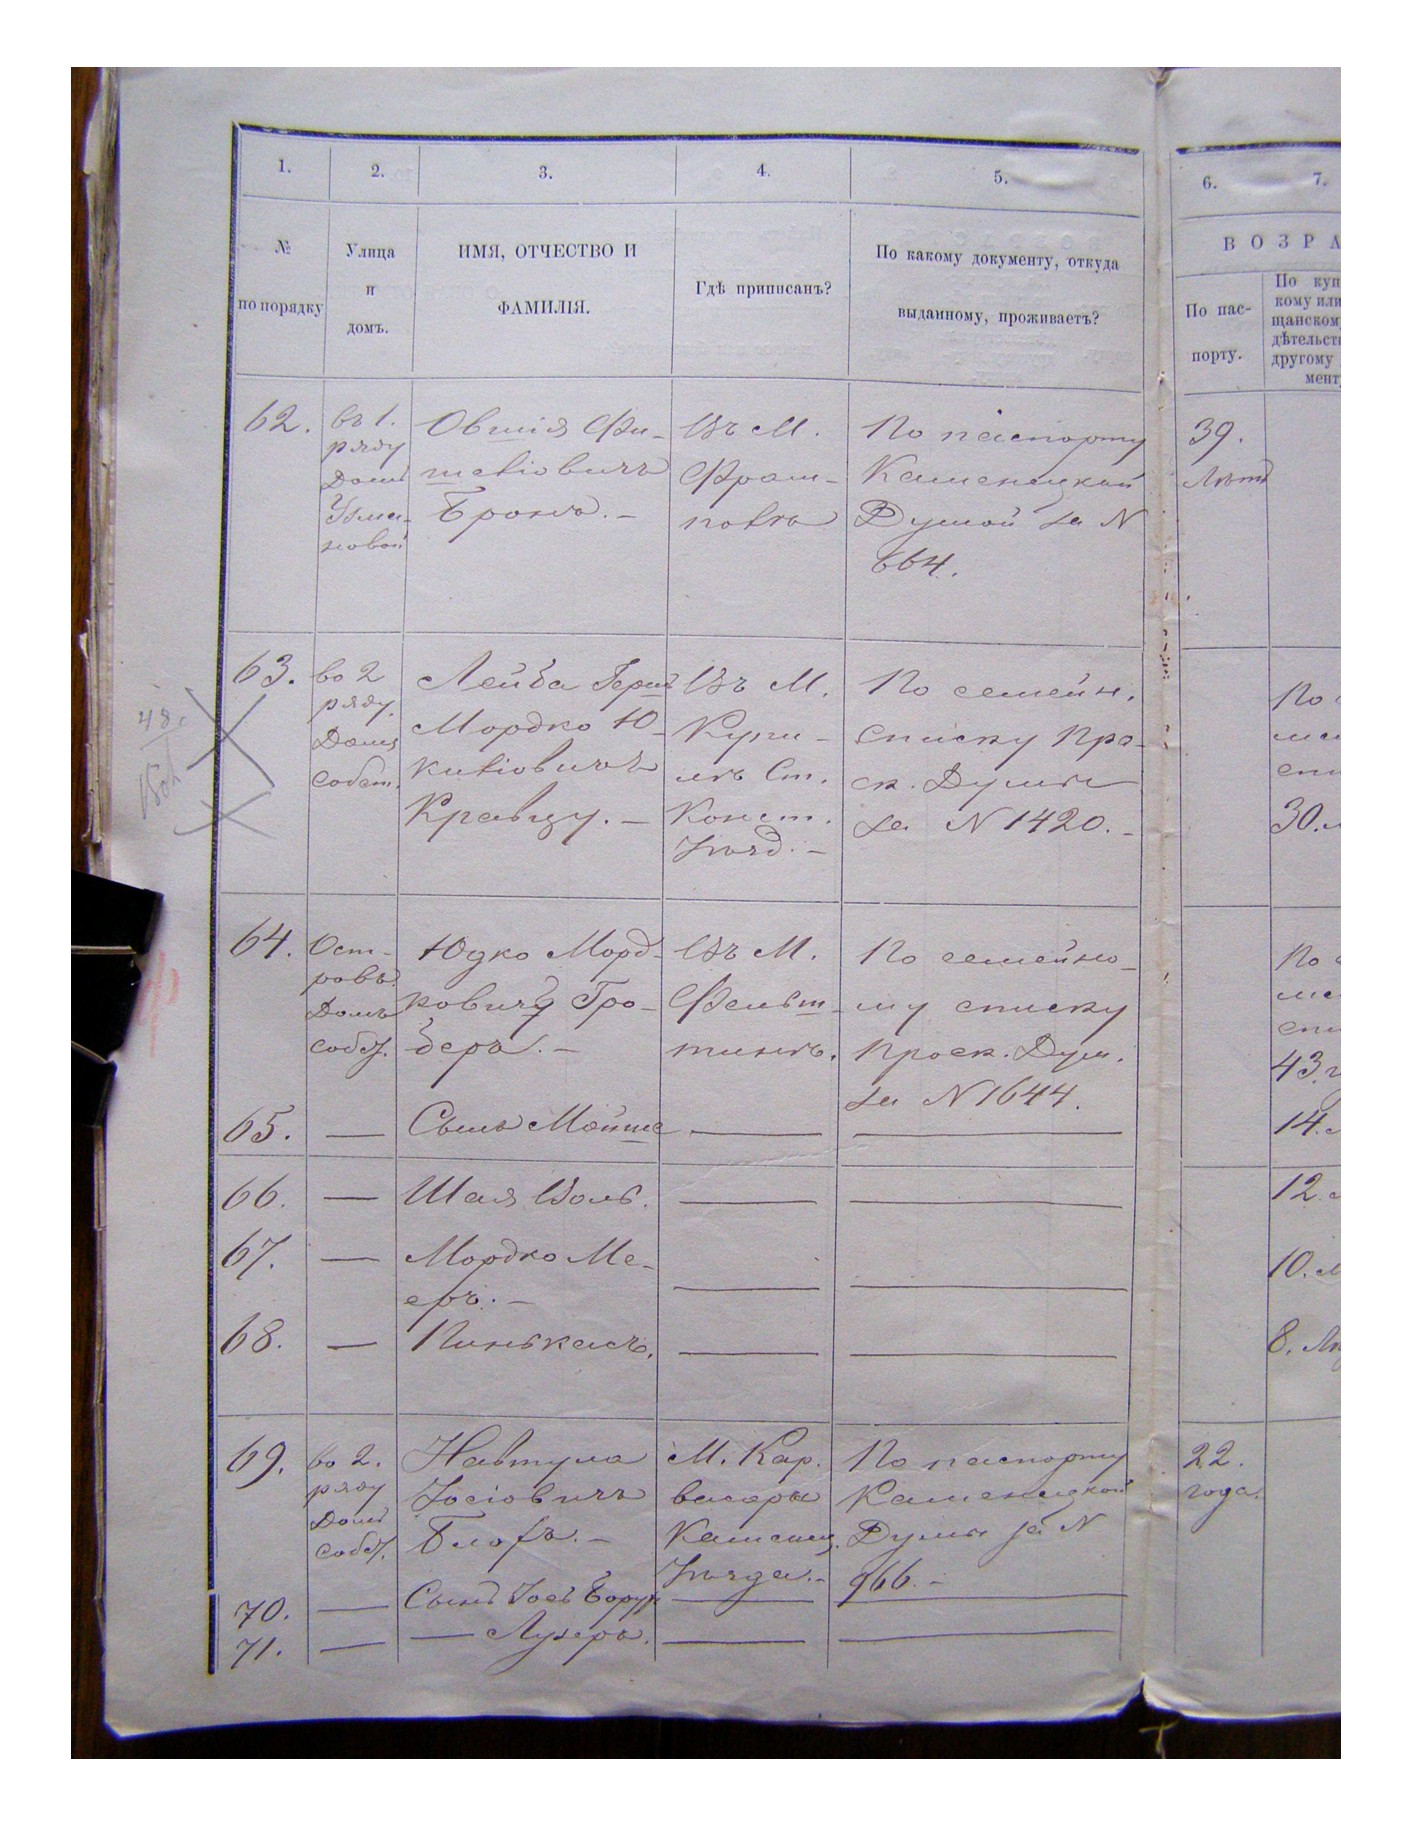 1. 2. 3. 4. 5. 6. 7.
№ по порядку
Улица и домъ.
ИМЯ, ОТЧЕСТВО И ФАМИЛІЯ.
Гдѣ приписанъ?
По какому документу, откуда выданному, проживаетъ?
ВОЗРА
По пас-
порту.
По куп
кому или
щанском
дѣтельст
другому
мент
62.
въ 1.
ряду
Домъ
новой
Овшія Фи-
шевіовичъ
Бронъ. –
Въ М.
Фрам-
повкѣ
По паспорту
Каменецкой
Думой за N
664.
39.
Лѣтъ
63.
во 2
ряду.
Домъ
собст.
Лейба Гершъ
Мордко Ю-
кивіовичъ
Кравцу. –
Въ М.
Купи-
лѣ Ст.
Конст.
Уѣзд. –
По семейн.
списку Про-
ск. Думы
за N 1420. –
По
30.
48.
64.
Ост-
ровъ.
Домъ
собст.
Юдко Морд-
ковичъ Гро-
беръ. –
Въ М.
Фельш-
тинѣ.
По семейно-
му списку
Проск. Дум.
за N 1644.
По
43.
65. — Сынъ Мойше — —
14.
66. — Шая Воль. — —
12.
67. — Мордко Ме-
еръ. – — —
10.
68. — Пинькасъ. — —
8.
69.
во 2.
ряду
Домъ
собст.
Навтула
Іосіовичъ
Блофъ. –
М. Кар.
васары
Каменец.
Уѣзда. –
По паспорту
Каменецкой
Думы за N
966. –
22.
года.
70. — Сынъ Іосъ Борух — —
71. — — Лузеръ. — —